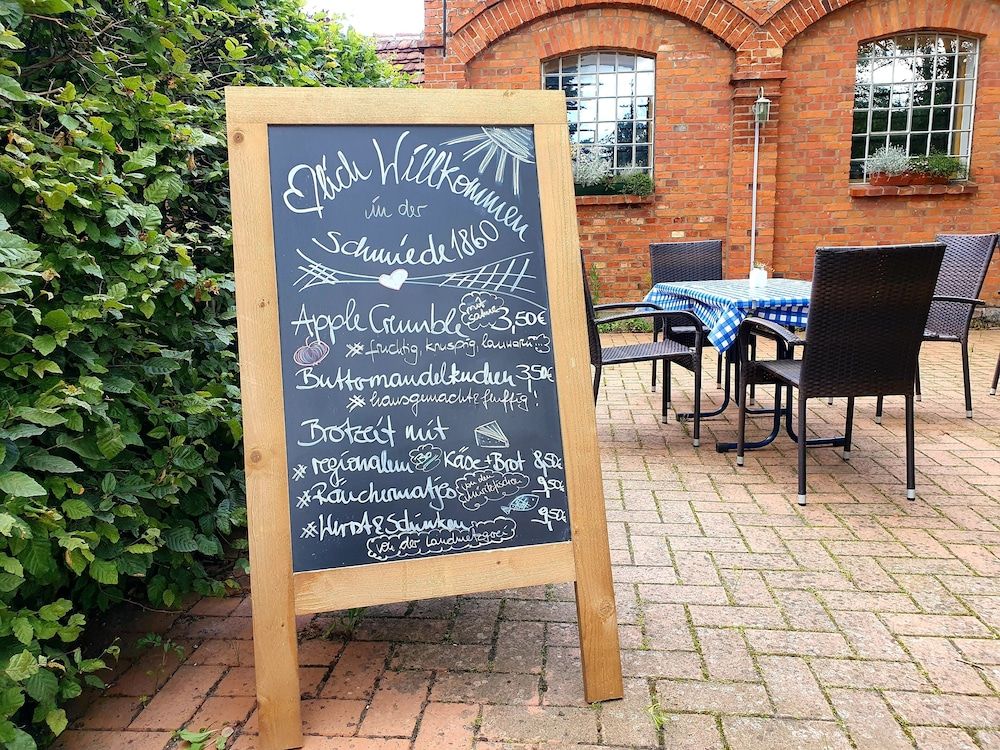 Herzlich Willkommen
in der
Schmiede 1860
Apple Crumble mit Sahne 3,50€
# fruchtig, knusprig, lauwarm!!!
Buttermandelkuchen 3,50€
# hausgemacht & fluffig!
Brotzeit mit
# regionalem Käse + Brot 8,50€
# Räuchermatjes 9,50€
# Wurst & Schinken 9,50€
von der Landmetzgerei